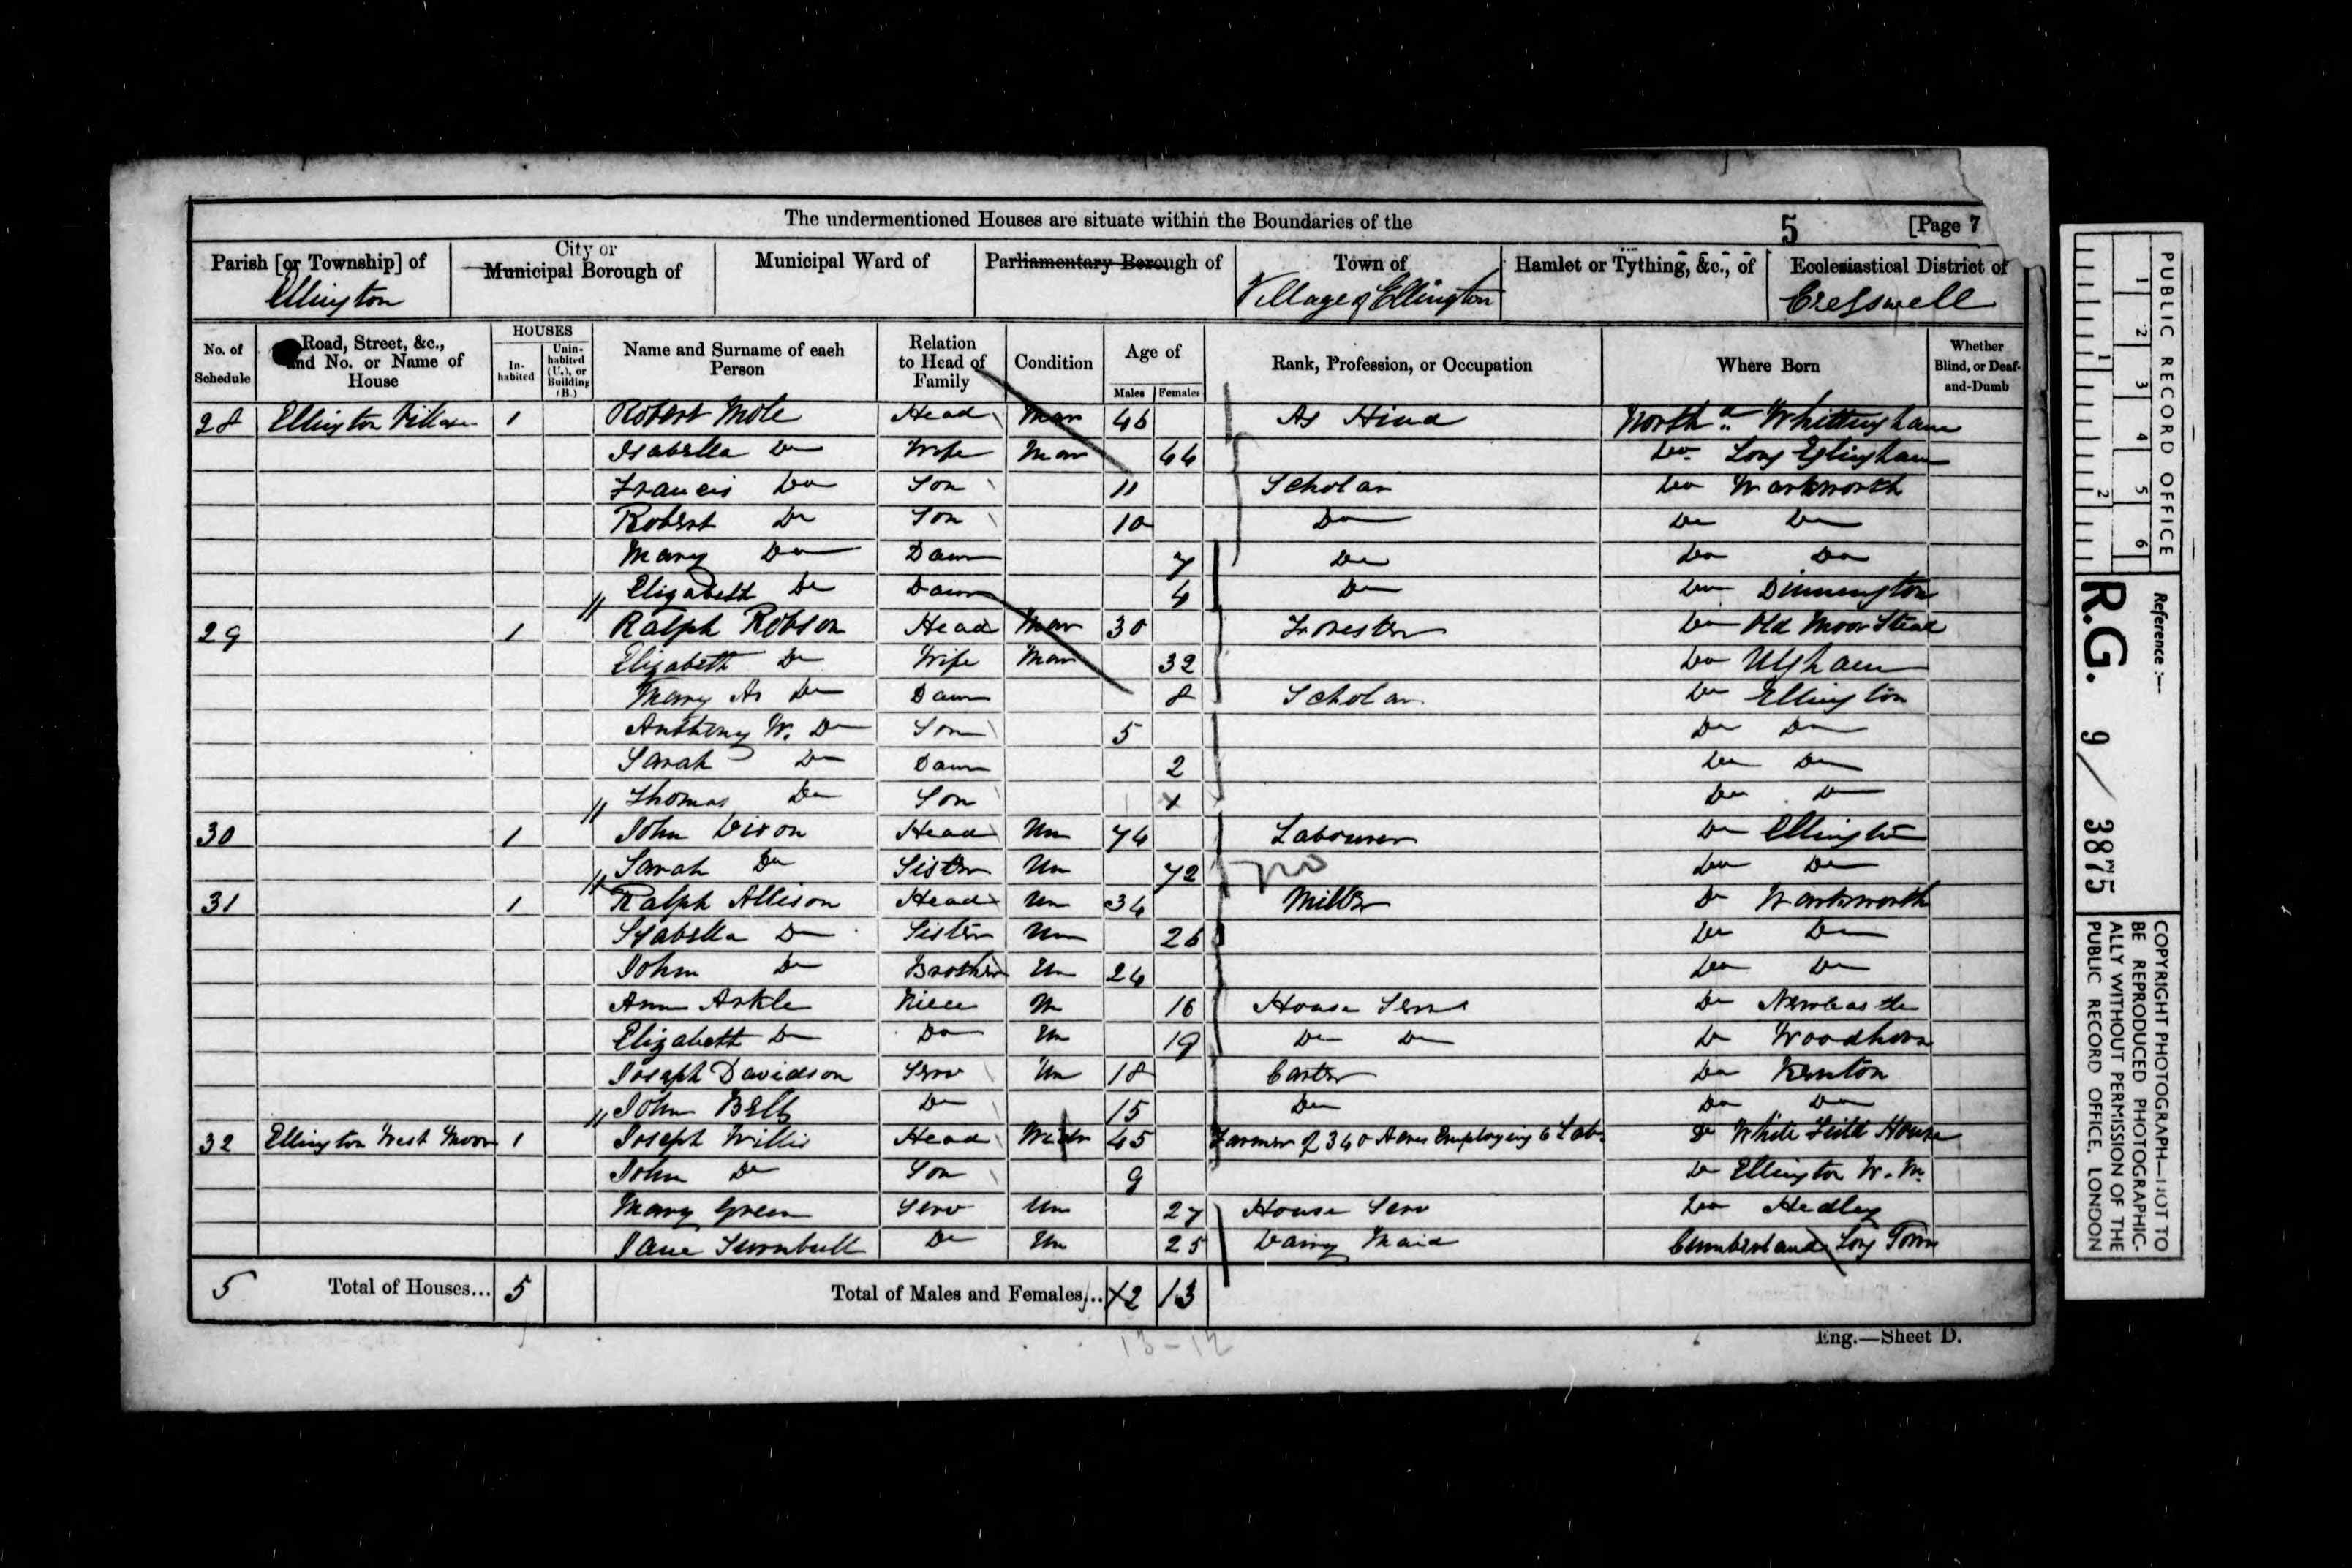 The undermentioned Houses are situate within the Boundaries of the 5 [Page 7
Parish [or Township] of City or Municipal Borough of Municipal Ward of Parliamentary Borough of Town of Hamlet or Tything, &c., of Ecclesiastical District of
Ellington Village of Ellington Cresswell
No. of Schedule Road, Street, &c., and No. or Name of House HOUSES In-habited Unin-habited (U.), or Building (B.) Name and Surname of each Person Relation to Head of Family Condition Age of Males Females Rank, Profession, or Occupation Where Born Whether Blind, or Deaf-and-Dumb
28 Ellington Village 1 Robert Mole Head Mar 46 Ag Hind North.d Whittingham
Isabella Do Wife Mar 44 Do Long
Francis Do Son 11 Scholar Do Warkworth
Robert Do Son 10 Do Do Do
Mary Do Daur 7 Do Do Do
Elizabeth Do Daur 4 Do Do Dinnington
29 1 Ralph Robson Head Mar 30 Forester Do Old Moor Stead
Elizabeth Do Wife Mar 32 Do Ulgham
Mary An Do Daur 8 Scholar Do Ellington
Anthony W. Do Son 5 Do Do
Sarah Do Daur 2 Do Do
Thomas Do Son Do Do
30 1 John Dixon Head Un 74 Labourer Do Ellington
Sarah Do Sister Un 72 Do Do
31 1 Ralph Allison Head Un 34 Miller Do Warkworth
Isabella Do Sister Un 26 Do Do
John Do Brother Un 24 Do Do
Ann Arkle Niece Un 16 House Serv Do Newcastle
Elizabeth Do Do Un 19 Do Do Do Woodhorn
Joseph Davidson Serv Un 18 Carter Do Kenton
John Bell Do 15 Do Do Do
32 Ellington West Moor 1 Joseph Willis Head Widr 45 Farmer of 340 Acres Employing 6 Lab. Do White Field House
John Do Son 9 Do Ellington W. M.
Mary Green Serv Un 27 House Serv Do Hedley
Jane Turnbull Do Un 25 Dairy Maid Cumberland Long Town
5 Total of Houses... 5 Total of Males and Females... 12 13
13-12
Eng.—Sheet D.
PUBLIC RECORD OFFICE
1 2 3 4 5 6
1 2
Reference:—
R.G. 9/3875
COPYRIGHT PHOTOGRAPH—NOT TO
BE REPRODUCED PHOTOGRAPHIC-
ALLY WITHOUT PERMISSION OF THE
PUBLIC RECORD OFFICE, LONDON